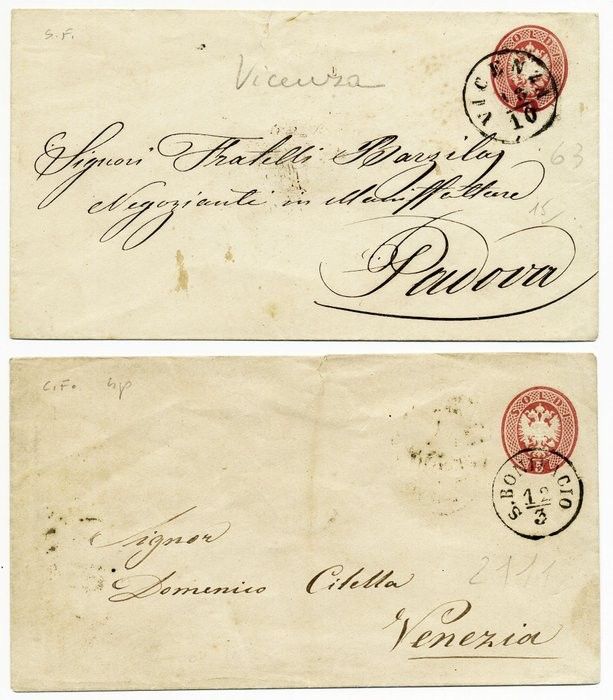 S. F.
SOLDI
Vicenza
VICENZA
10
63
Signori Fratelli Barzilaj
Negozianti in Maniffatture
15
Padova
C.F.
SOLDI
5
S. BONIFACIO
12
3
2111
Signor
Domenico Citella
Venezia